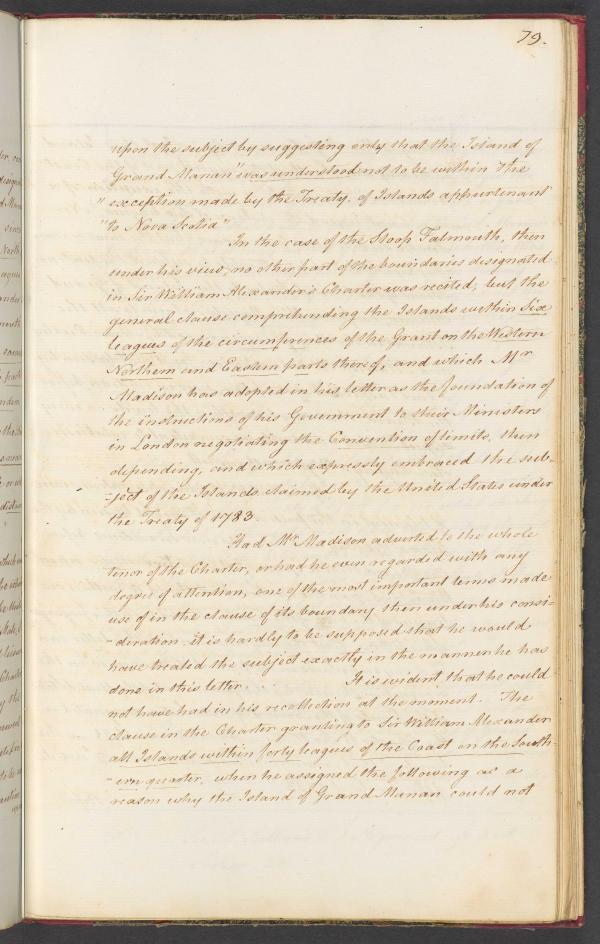 79.
upon the subject by suggesting only that the Island of
Grand Manan "was understood not to be within the
" exception made by the Treaty, of Islands appurtenant
"to Nova Scotia"
In the case of the Sloop Falmouth, then
under his view, no other part of the boundaries designated
in Sir William Alexander's Charter was recited, but the
general clause comprehending the Islands within Six
leagues of the circumferences of the Grant on the Western
Northern and Eastern parts thereof, and which Mr
Madison has adopted in his letter as the foundation of
the instructions of his Government to their Ministers
in London negotiating the Convention of limits, then
depending, and which expressly embraced the sub-
-ject of the Islands claimed by the United States under
the Treaty of 1783.
Had Mr Madison adverted to the whole
tenor of the Charter, or had he even regarded with any
degree of attention, one of the most important terms made
use of in the clause of its boundary then under his consi=
-deration, it is hardly to be supposed that he would
have treated the subject exactly in the manner he has
done in this letter. . . . It is evident that he could
not have had in his recollection at the moment. The
clause in the Charter granting to Sir William Alexander
all Islands within forty leagues of the Coast on the South-
-ern quarter, when he assigned the following as a
reason why the Island of Grand Manan could not